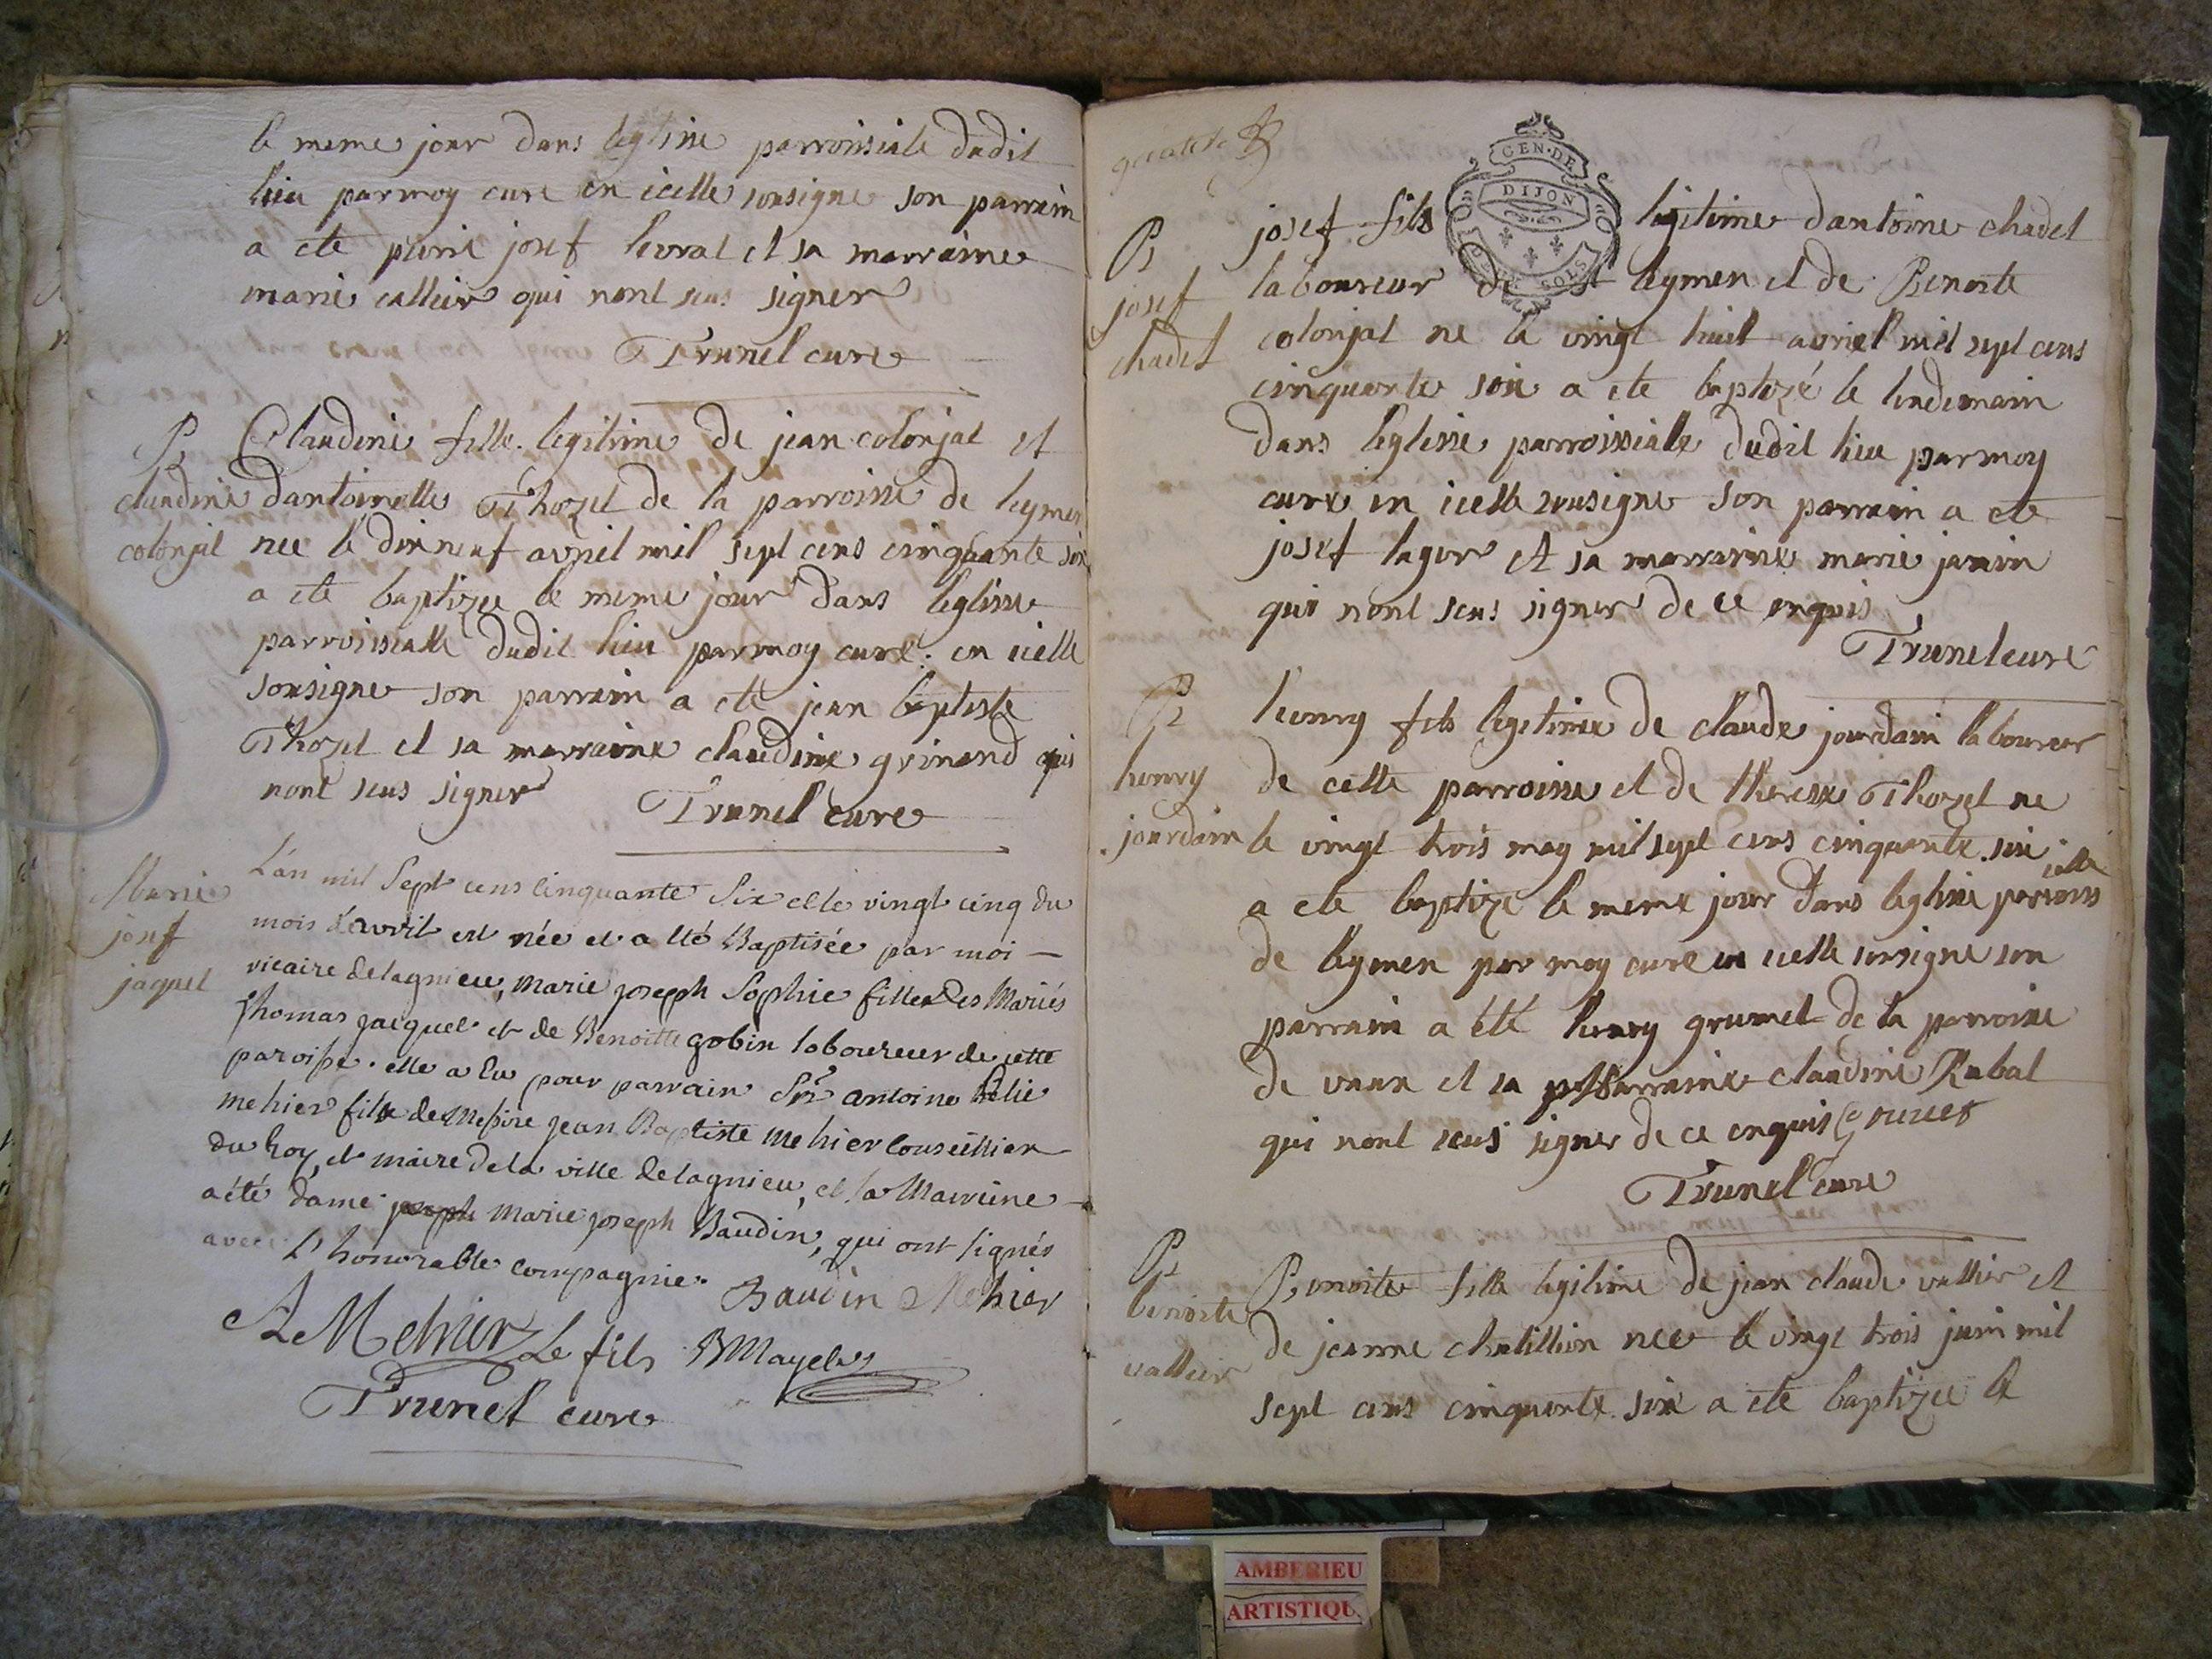 le meme jour dans leglise parroissiale dudit
lieu par moy cure en icelle sousigne son parrain
a ete josef levrat et sa marraine
marie vallier qui nont seus signer
Trunel cure
B
claudine
colonjat
Claudine fille legitime de jean colonjat et
dantoinette Thozet de la parroisse de leymen
nee le dixneuf avril mil sept cens cinquante six
a ete baptizee le meme jour dans leglisse
parroissialle dudit lieu par moy curé en icelle
sousigne son parrain a ete jean baptiste
Thozet et sa marraine claudine grinand qui
nont seus signer
Trunel cure
Marie
josef
jaquet
L'an mil Sept cens cinquante Six et le vingt cinq du
mois davril est née et a été Baptisée par moi
vicaire de lagnieu, marie joseph Sophie fille des Mariés
Thomas jacquet et de Benoitte gobin laboureur de cette
paroisse. elle a eu pour parrain Sr antoine
mehier fils de Messire jean Baptiste mehier Conseillier
du Roy, et maire de la ville de lagnieu, et la Marrine
a été dame joseph marie joseph Baudin, qui ont signés
avec L'honorable compagnie. Baudin Mehier
A Mehier Le fils BMayet
Trunel cure
GEN. DE
DIJON
B
josef
chadet
josef fils legitime dantoine chadet
laboureur de leymen et de Benoite
colonjat ne le vingt huit avriel mil sept cens
cinquante six a ete baptizé le lendemain
dans leglisse parroissialle dudit lieu par moy
cure en icelle sousigne son parrain a ete
josef lager et sa marraine marie janin
qui nont seus signer de ce enquis
Trunel cure
B
henry
jourdain
henry fils legitime de claude jourdain laboureur
de cette parroisse et de theresse Thozet ne
le vingt trois may mil sept cens cinquante six
a ete baptize le meme jour dans leglisse parroissialle
de leymen par moy cure en icelle sousigne son
parrain a été henry grumet de la parroisse
de vaux et sa Marraine claudine Rabat
qui nont seus signer de ce enquis
Trunel cure
B
benoite
vallier
Benoite fille legitime de jean claude vallier et
de jeanne chatillion nee le vingt trois juin mil
sept cens cinquante six a ete baptizee le
AMBERIEU
ARTISTIQU